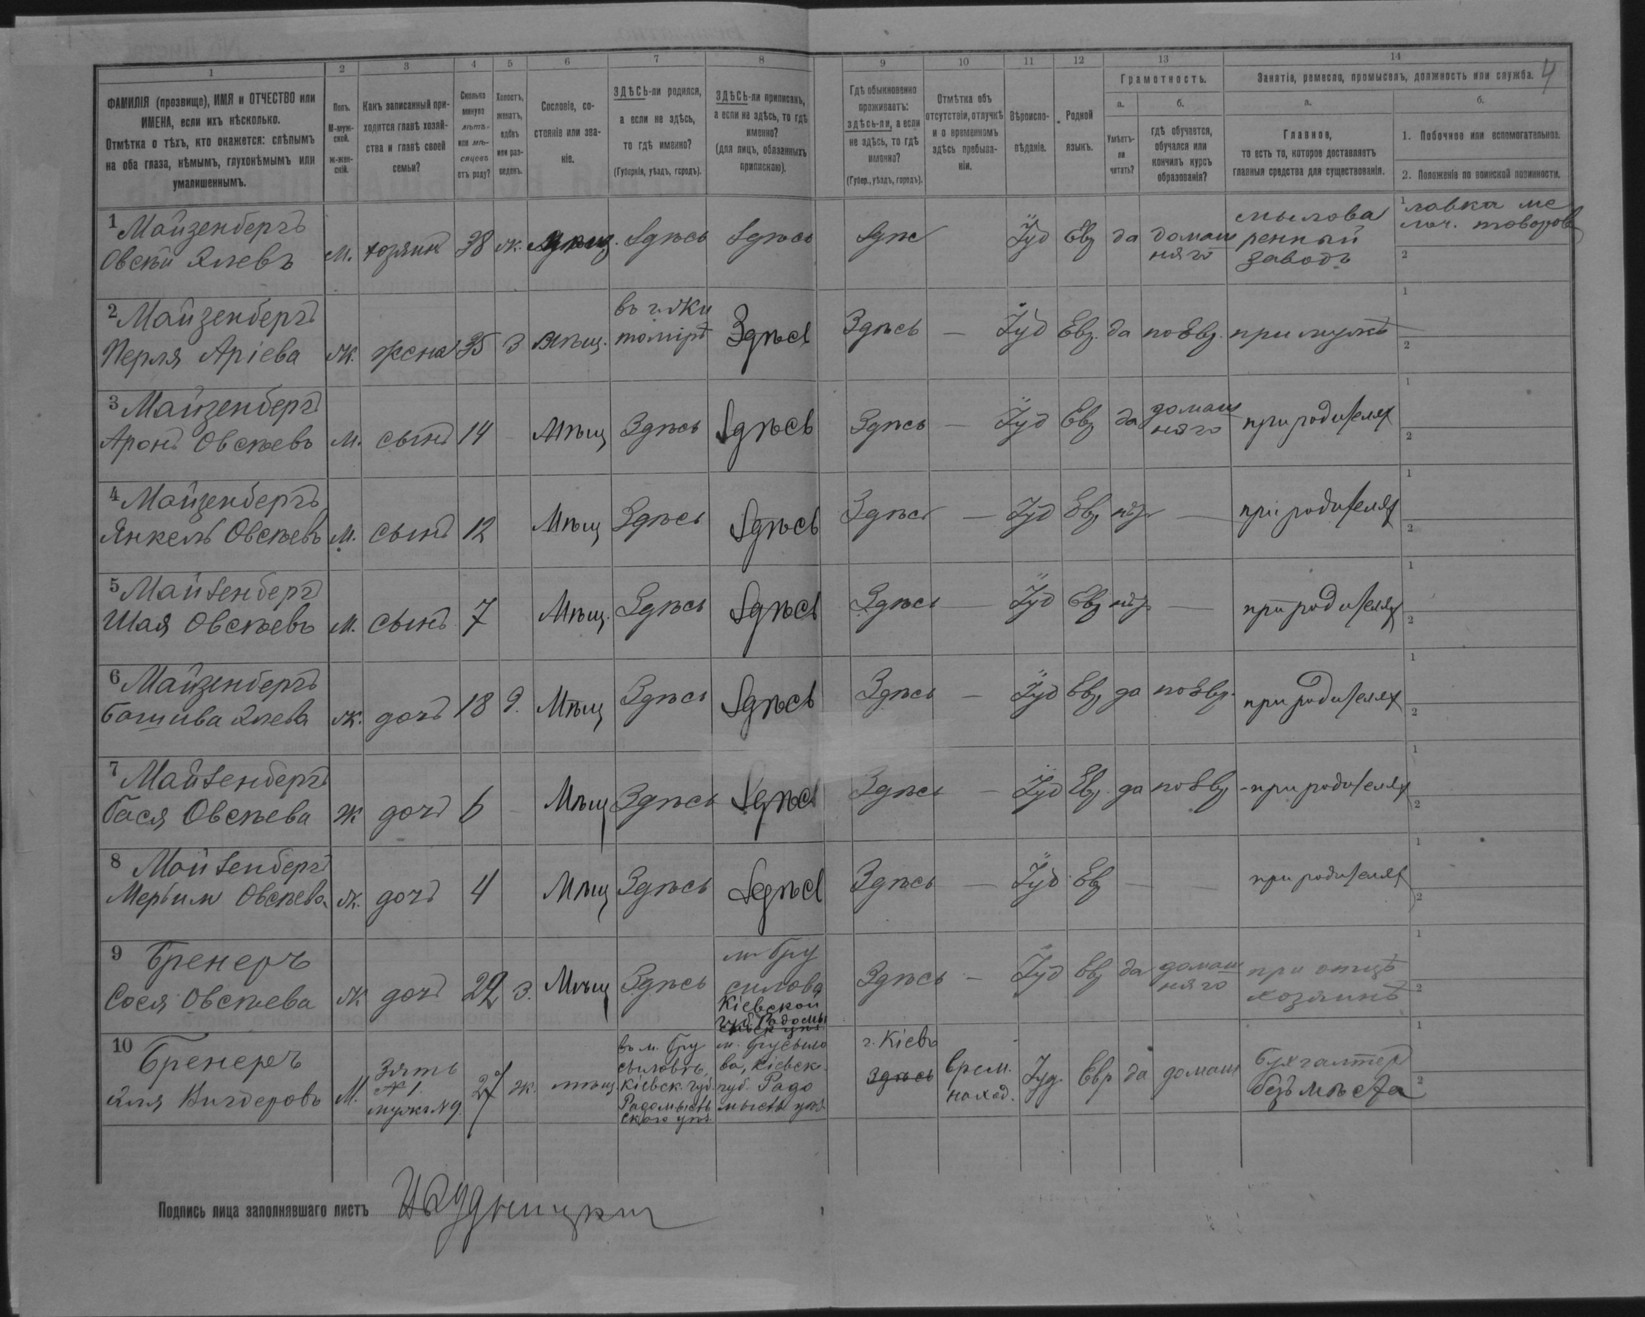 4
1 2 3 4 5 6 7 8 9 10 11 12 13 14
ФАМИЛІЯ (прозвище), ИМЯ и ОТЧЕСТВО или
ИМЕНА, если ихъ нѣсколько.
Отмѣтка о тѣхъ, кто окажется: слѣпымъ
на оба глаза, нѣмымъ, глухонѣмымъ или
умалишеннымъ.
Полъ.
М-муж-
ской.
Ж-жен-
скій.
Какъ записанный при-
ходится главѣ хозяй-
ства и главѣ своей
семьи?
Сколько
минуло
лѣтъ
или мѣ-
сяцевъ
отъ роду?
Холостъ,
женатъ,
вдовъ
или раз-
веденъ.
Сословіе, со-
стояніе или зва-
ніе.
ЗДѢСЬ-ли родился,
а если не здѣсь,
то гдѣ именно?
(Губернія, уѣздъ, городъ).
ЗДѢСЬ-ли приписанъ,
а если не здѣсь, то гдѣ
именно?
(для лицъ, обязанныхъ
припискою).
Гдѣ обыкновенно
проживаетъ:
здѣсь-ли, а если
не здѣсь, то гдѣ
именно?
(Губер., уѣздъ, городъ).
Отмѣтка объ
отсутствіи, отлучкѣ
и о временномъ
здѣсь пребыва-
ніи.
Вѣроиспо-
вѣданіе.
Родной
языкъ.
Грамотность.
а.
Умѣетъ-
ли
читать?
б.
гдѣ обучается,
обучался или
кончилъ курсъ
образованія?
Занятіе, ремесло, промыселъ, должность или служба.
а.
Главное,
то есть то, которое доставляетъ
главныя средства для существованія.
б.
1. Побочное или вспомогательное.
2. Положеніе по воинской повинности.
1 Майзенбергъ
Овсѣй Элевъ М. хозяинъ 38 ж. Здѣсь Здѣсь Здѣс Іуд Евр да домаш
няго
мылова
ренный
заводъ
1 лавка ме
лоч. товаровъ
2
2 Майзенбергъ
Перля Аріева Ж. жена 35 З Мѣщ.
въ г. Жи
томірѣ
Здѣсь Здѣсь — Іуд Евр. да по Евр. при мужѣ
1
2
3 Майзенбергъ
Аронъ Овсѣевъ М. сынъ 14 Мѣщ Здѣсь Здѣсь Здѣсь — Іуд Евр да домаш
няго
при родителях
1
2
4 Майзенбергъ
Янкель Овсѣевъ М. сынъ 12 Мѣщ Здѣсь Здѣсь Здѣсь — Іуд Евр нѣт — при родителях
1
2
5 Майзенбергъ
Шая Овсѣевъ М. сынъ 7 Мѣщ. Здѣсь Здѣсь Здѣсь — Іуд Евр нѣт — при родителях
1
2
6 Майзенбергъ
Ж. дочь 18 Мѣщ Здѣсь Здѣсь Здѣсь — Іуд Евр да по Евр. при родителях
1
2
7 Майзенбергъ
Бася Овсѣева Ж дочь 6 Мѣщ Здѣсь Здѣсь Здѣсь — Іуд Евр. да по Евр при родителях
1
2
8 Майзенбергъ
Овсѣева Ж. дочь 4 Мѣщ Здѣсь Здѣсь Здѣсь — Іуд Евр — — при родителях
1
2
9 Бренеръ
Сося Овсѣева Ж дочь 22 З. Мѣщ Здѣсь
м. Бру
силова
Кіевской
губ. Радомы
Здѣсь — Іуд Евр да домаш
няго
при отцѣ
хозяинѣ
1
2
10 Бренеръ
Эля Вигдеровъ М.
Зять
№ 1
мужъ № 9
27 ж. мѣщ
въ м. Бру
силовѣ,
Кіевск. губ.
Радомысль
скаго уѣз
м. Брусило
ва, Кіевск.
губ. Радо
мысль уѣз
г. Кіевъ
Здѣсь
Врем.
наход.
Іуд. Евр да домаш
Бухгалтеръ
безъ мѣста
1
2
Подпись лица заполнявшаго листъ